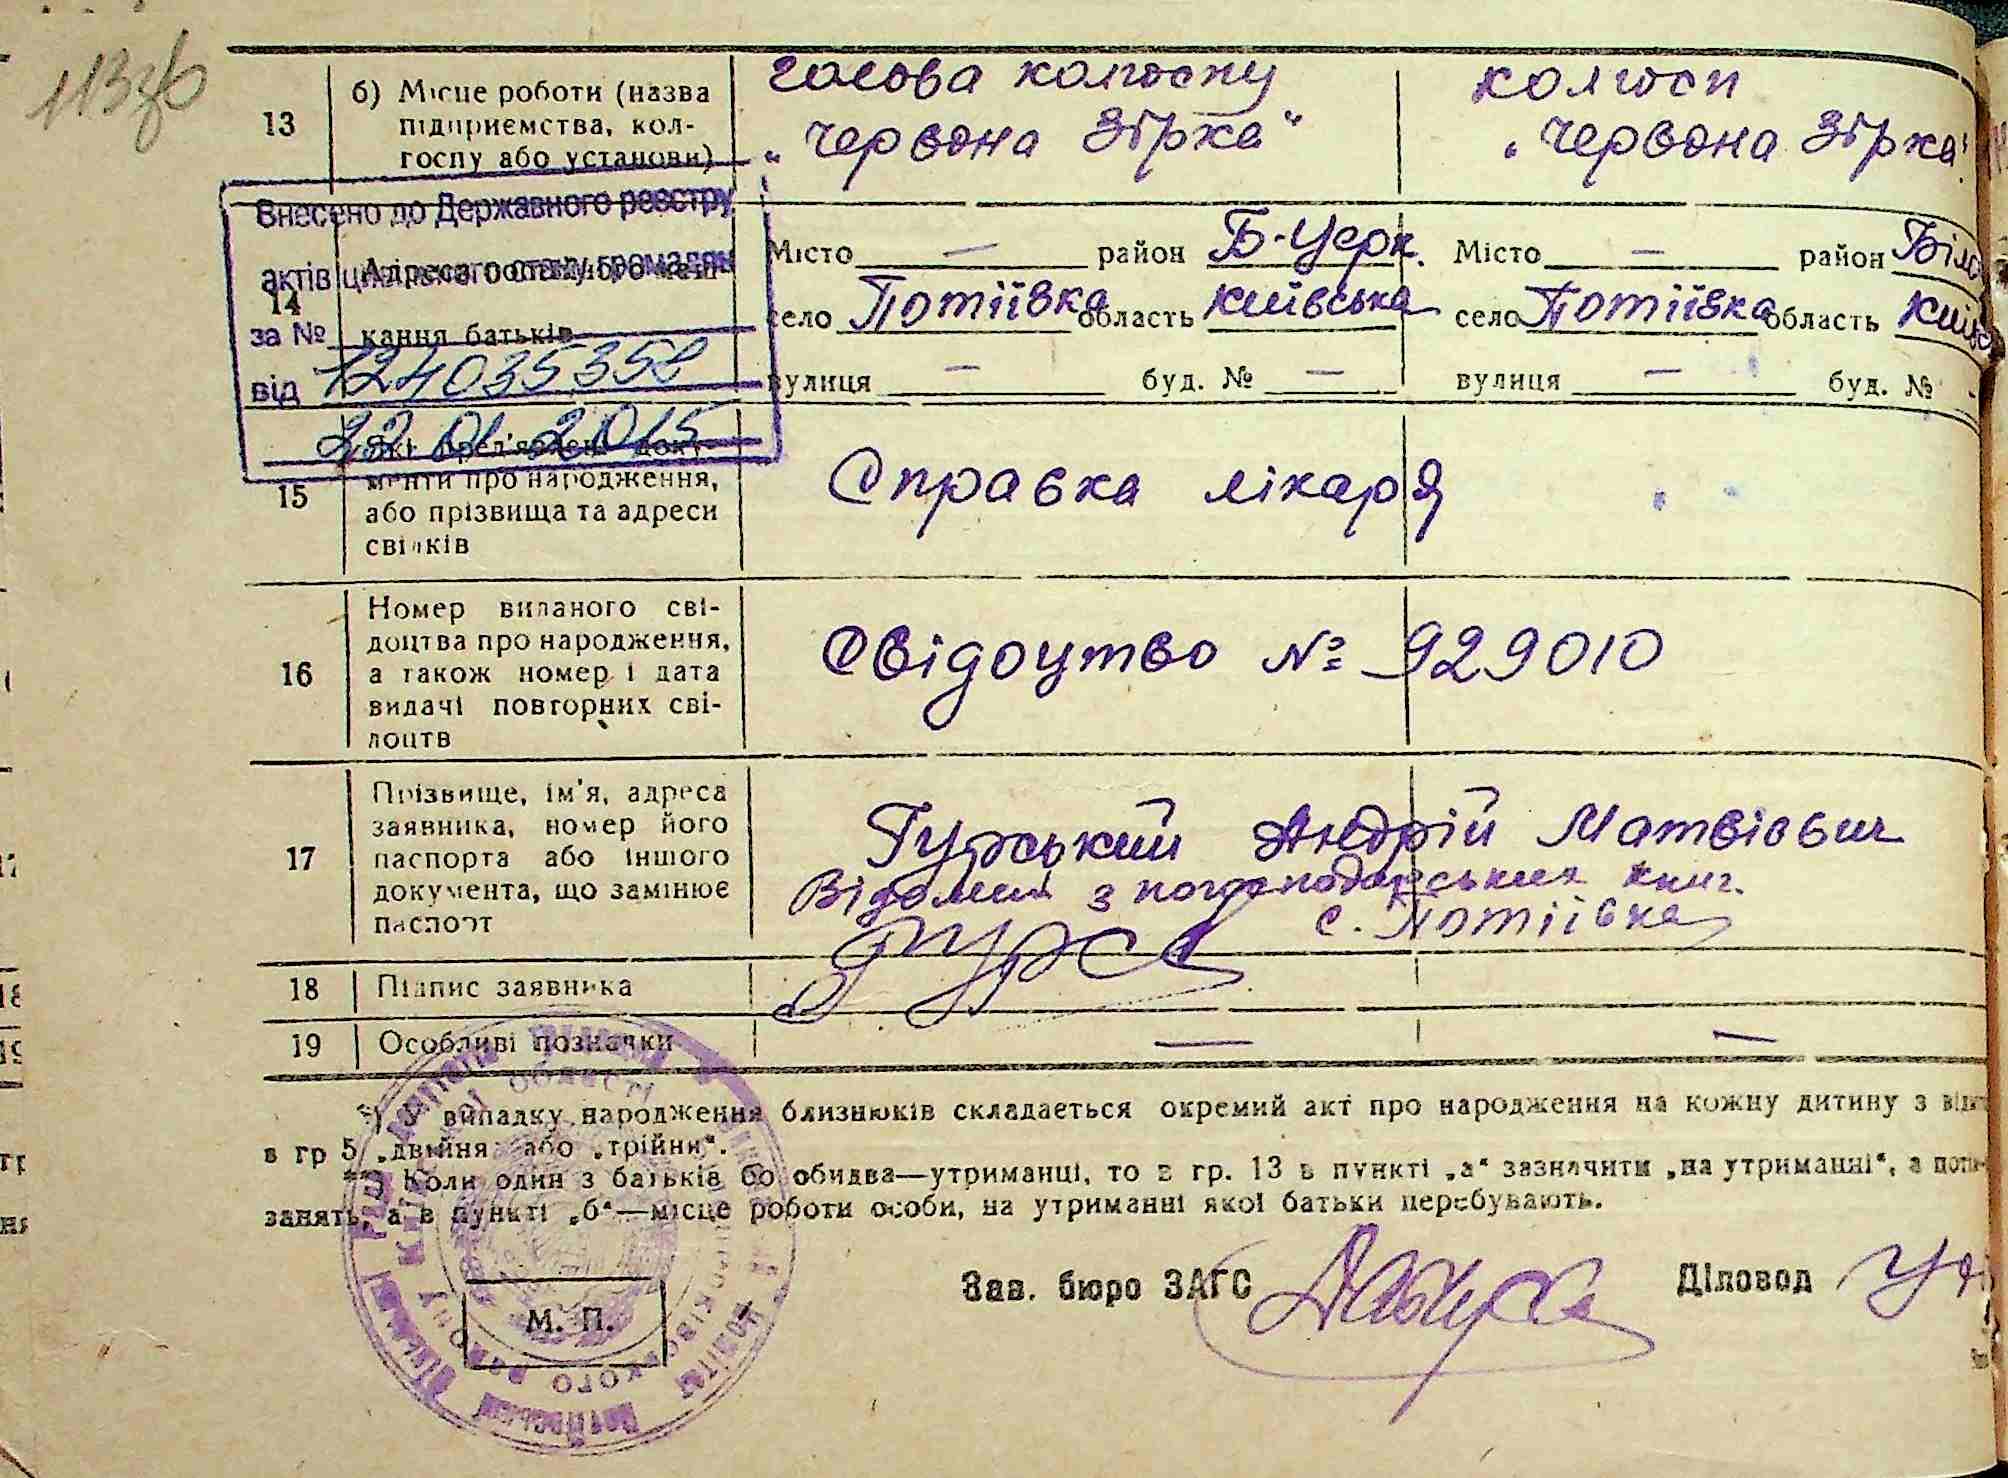 13
б) Місце роботи (назва
підприємства, кол-
госпу або установи)
голова колгоспу
„Червона Зірка“
колгосп
„Червона Зірка“
Внесено до Державного реєстру
актів цивільного стану громадян
за № 124035358
від 22 01 2015
14
Адреса постійного меш-
кання батьків
Місто — район Б-Церк.
село Потіївка область Київська
вулиця — буд. № —
Місто — район Біло
село Потіївка область Київс
вулиця — буд. № -
15
Які пред'явлені доку-
менти про народження,
або прізвища та адреси
свідків
Справка лікаря
16
Номер виданого сві-
доцтва про народження,
а також номер і дата
видачі повторних сві-
доцтв
Свідоцтво № 929010
17
Прізвище, ім'я, адреса
заявника, номер його
паспорта або іншого
документа, що замінює
паспорт
Гурський Андрій Матвієвич
Відомий з погосподарських книг.
с. Потіївка
18
Підпис заявника
19
Особливі позначки
—
—
*) У випадку народження близнюків складається окремий акт про народження на кожну дитину з
в гр 5 „двійня“ або „трійни“.
**) Коли один з батьків бо обидва—утриманці, то в гр. 13 в пункті „а“ зазначити „на утриманні“, а
занять, а в пункті „б“—місце роботи особи, на утриманні якої батьки перебувають.
Зав. бюро ЗАГС
Діловод
М. П.